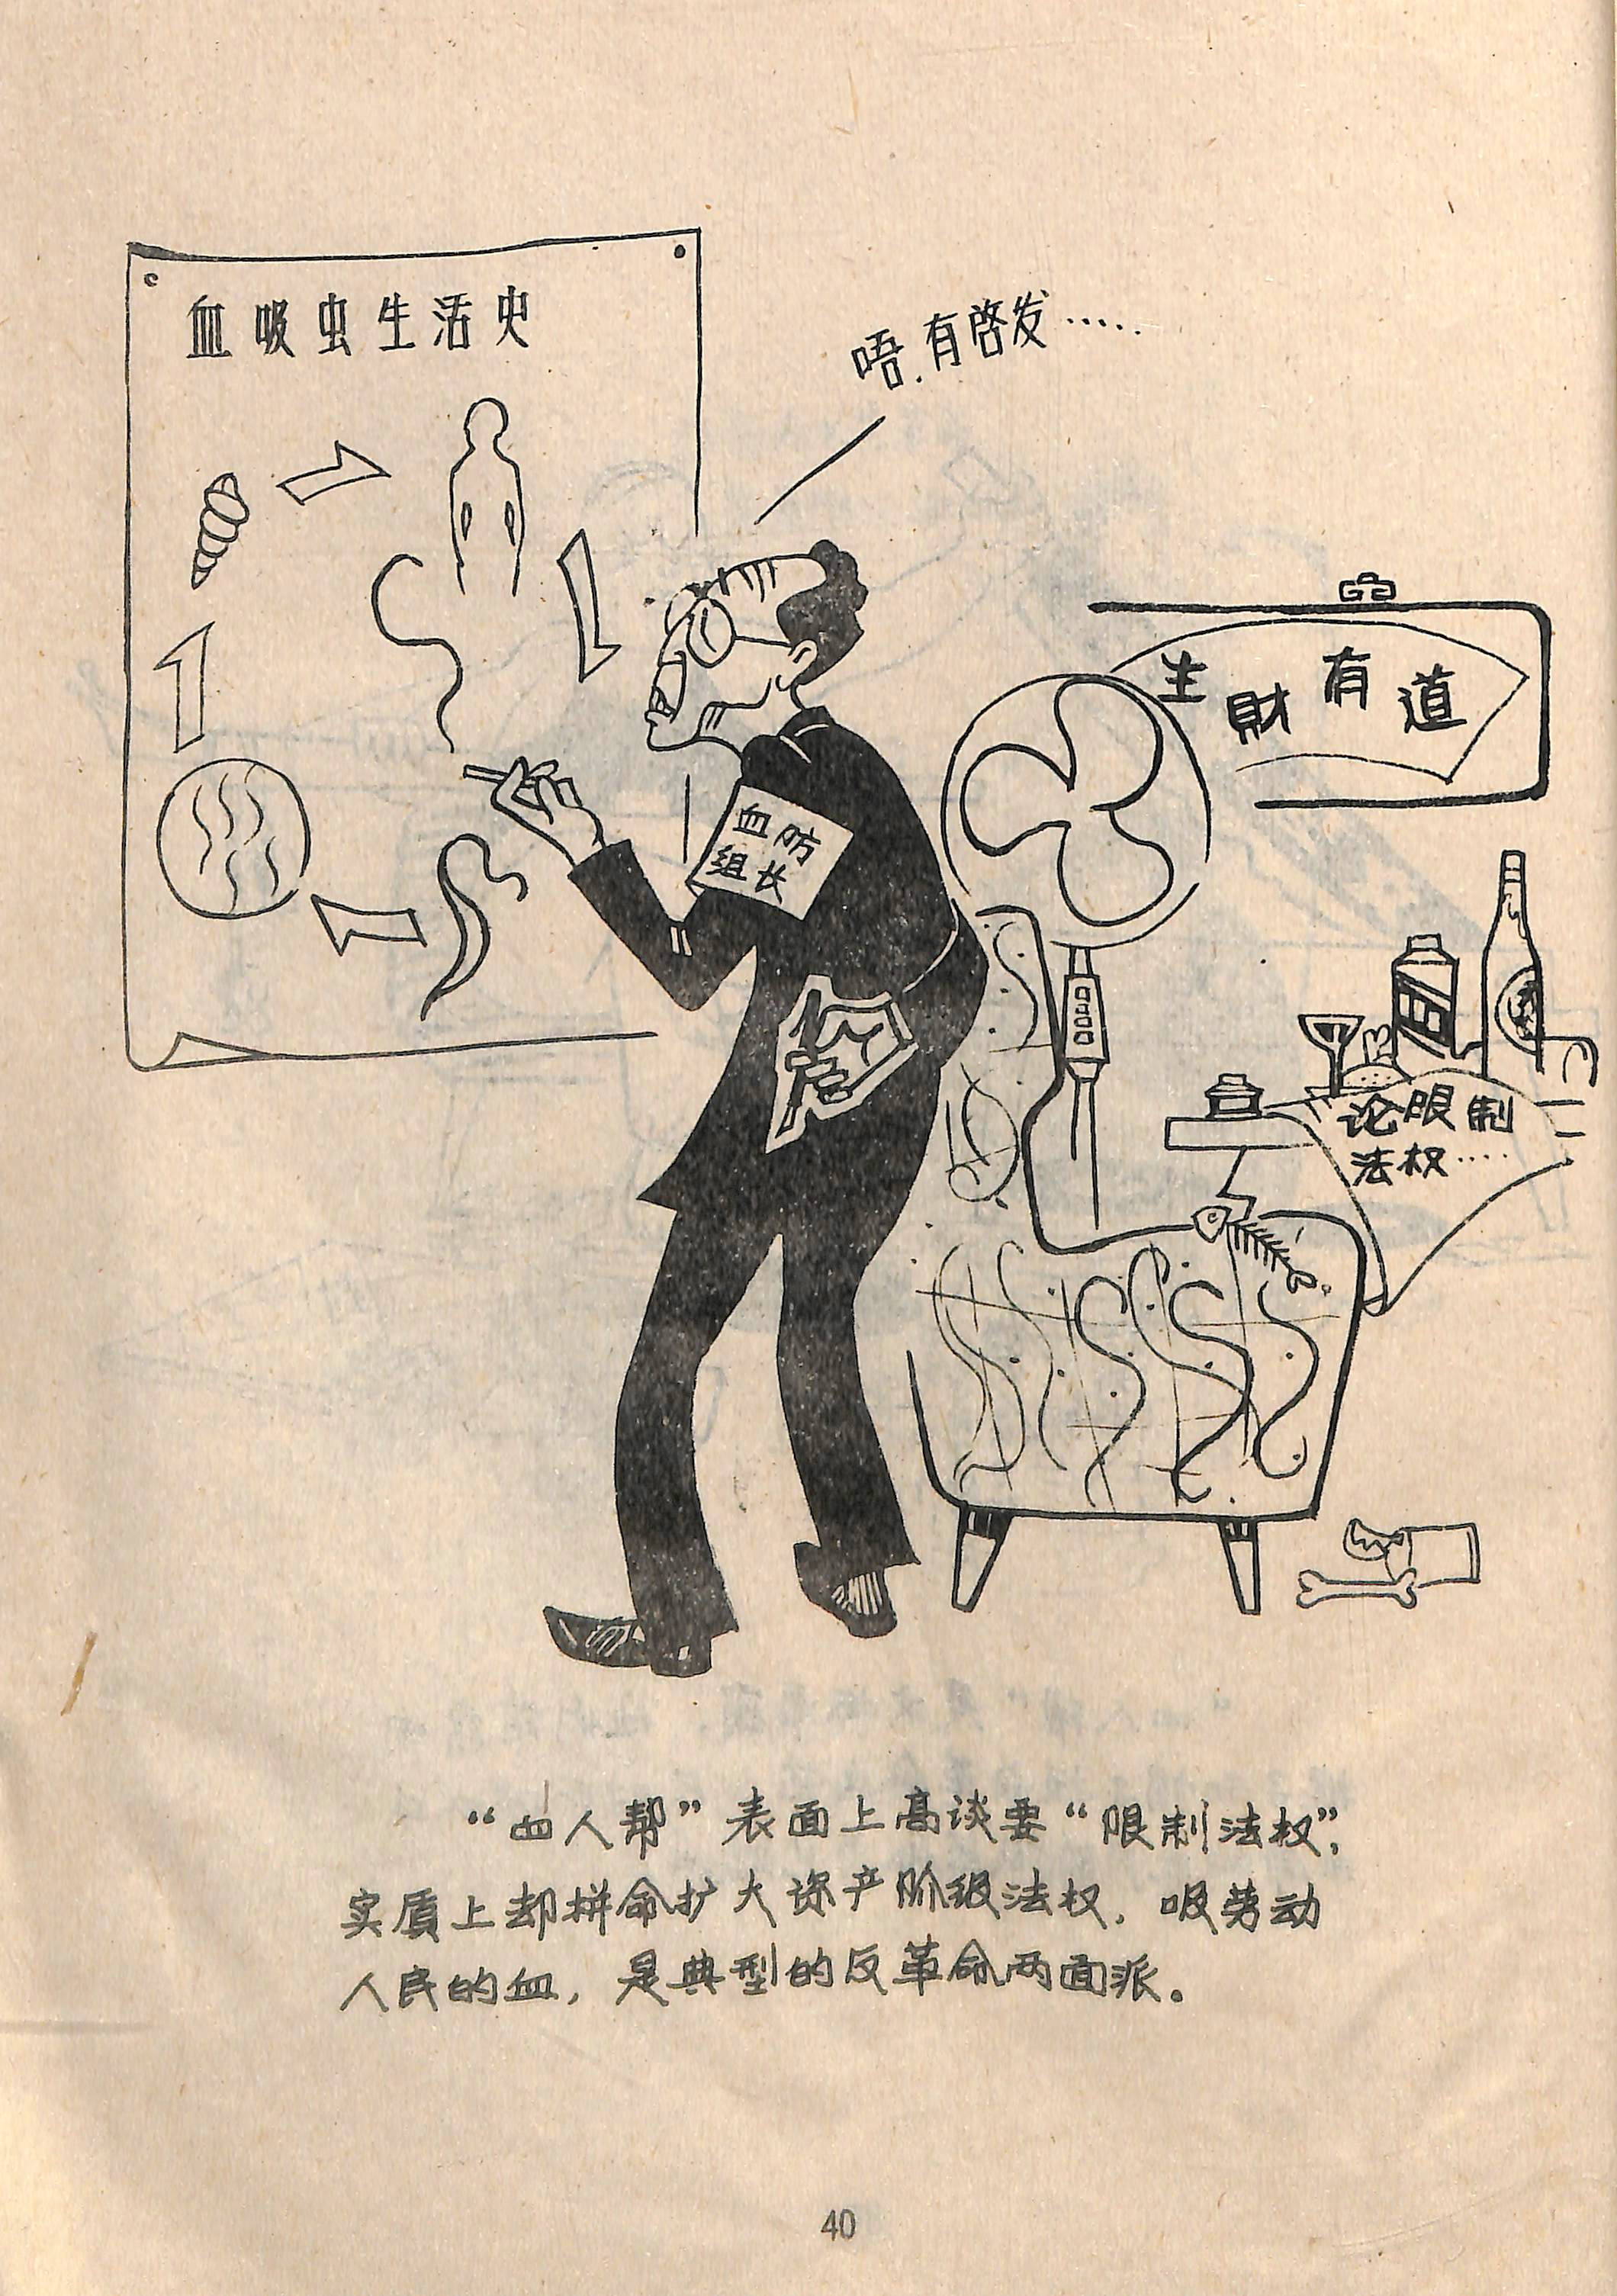 血吸虫生活史
唔.有啓发·····
生財有道
血防
组长
论限制
法权····
“四人帮”表面上高谈要“限制法权”，
实质上却拼命扩大资产阶级法权，吸劳动
人民的血，是典型的反革命两面派。
40